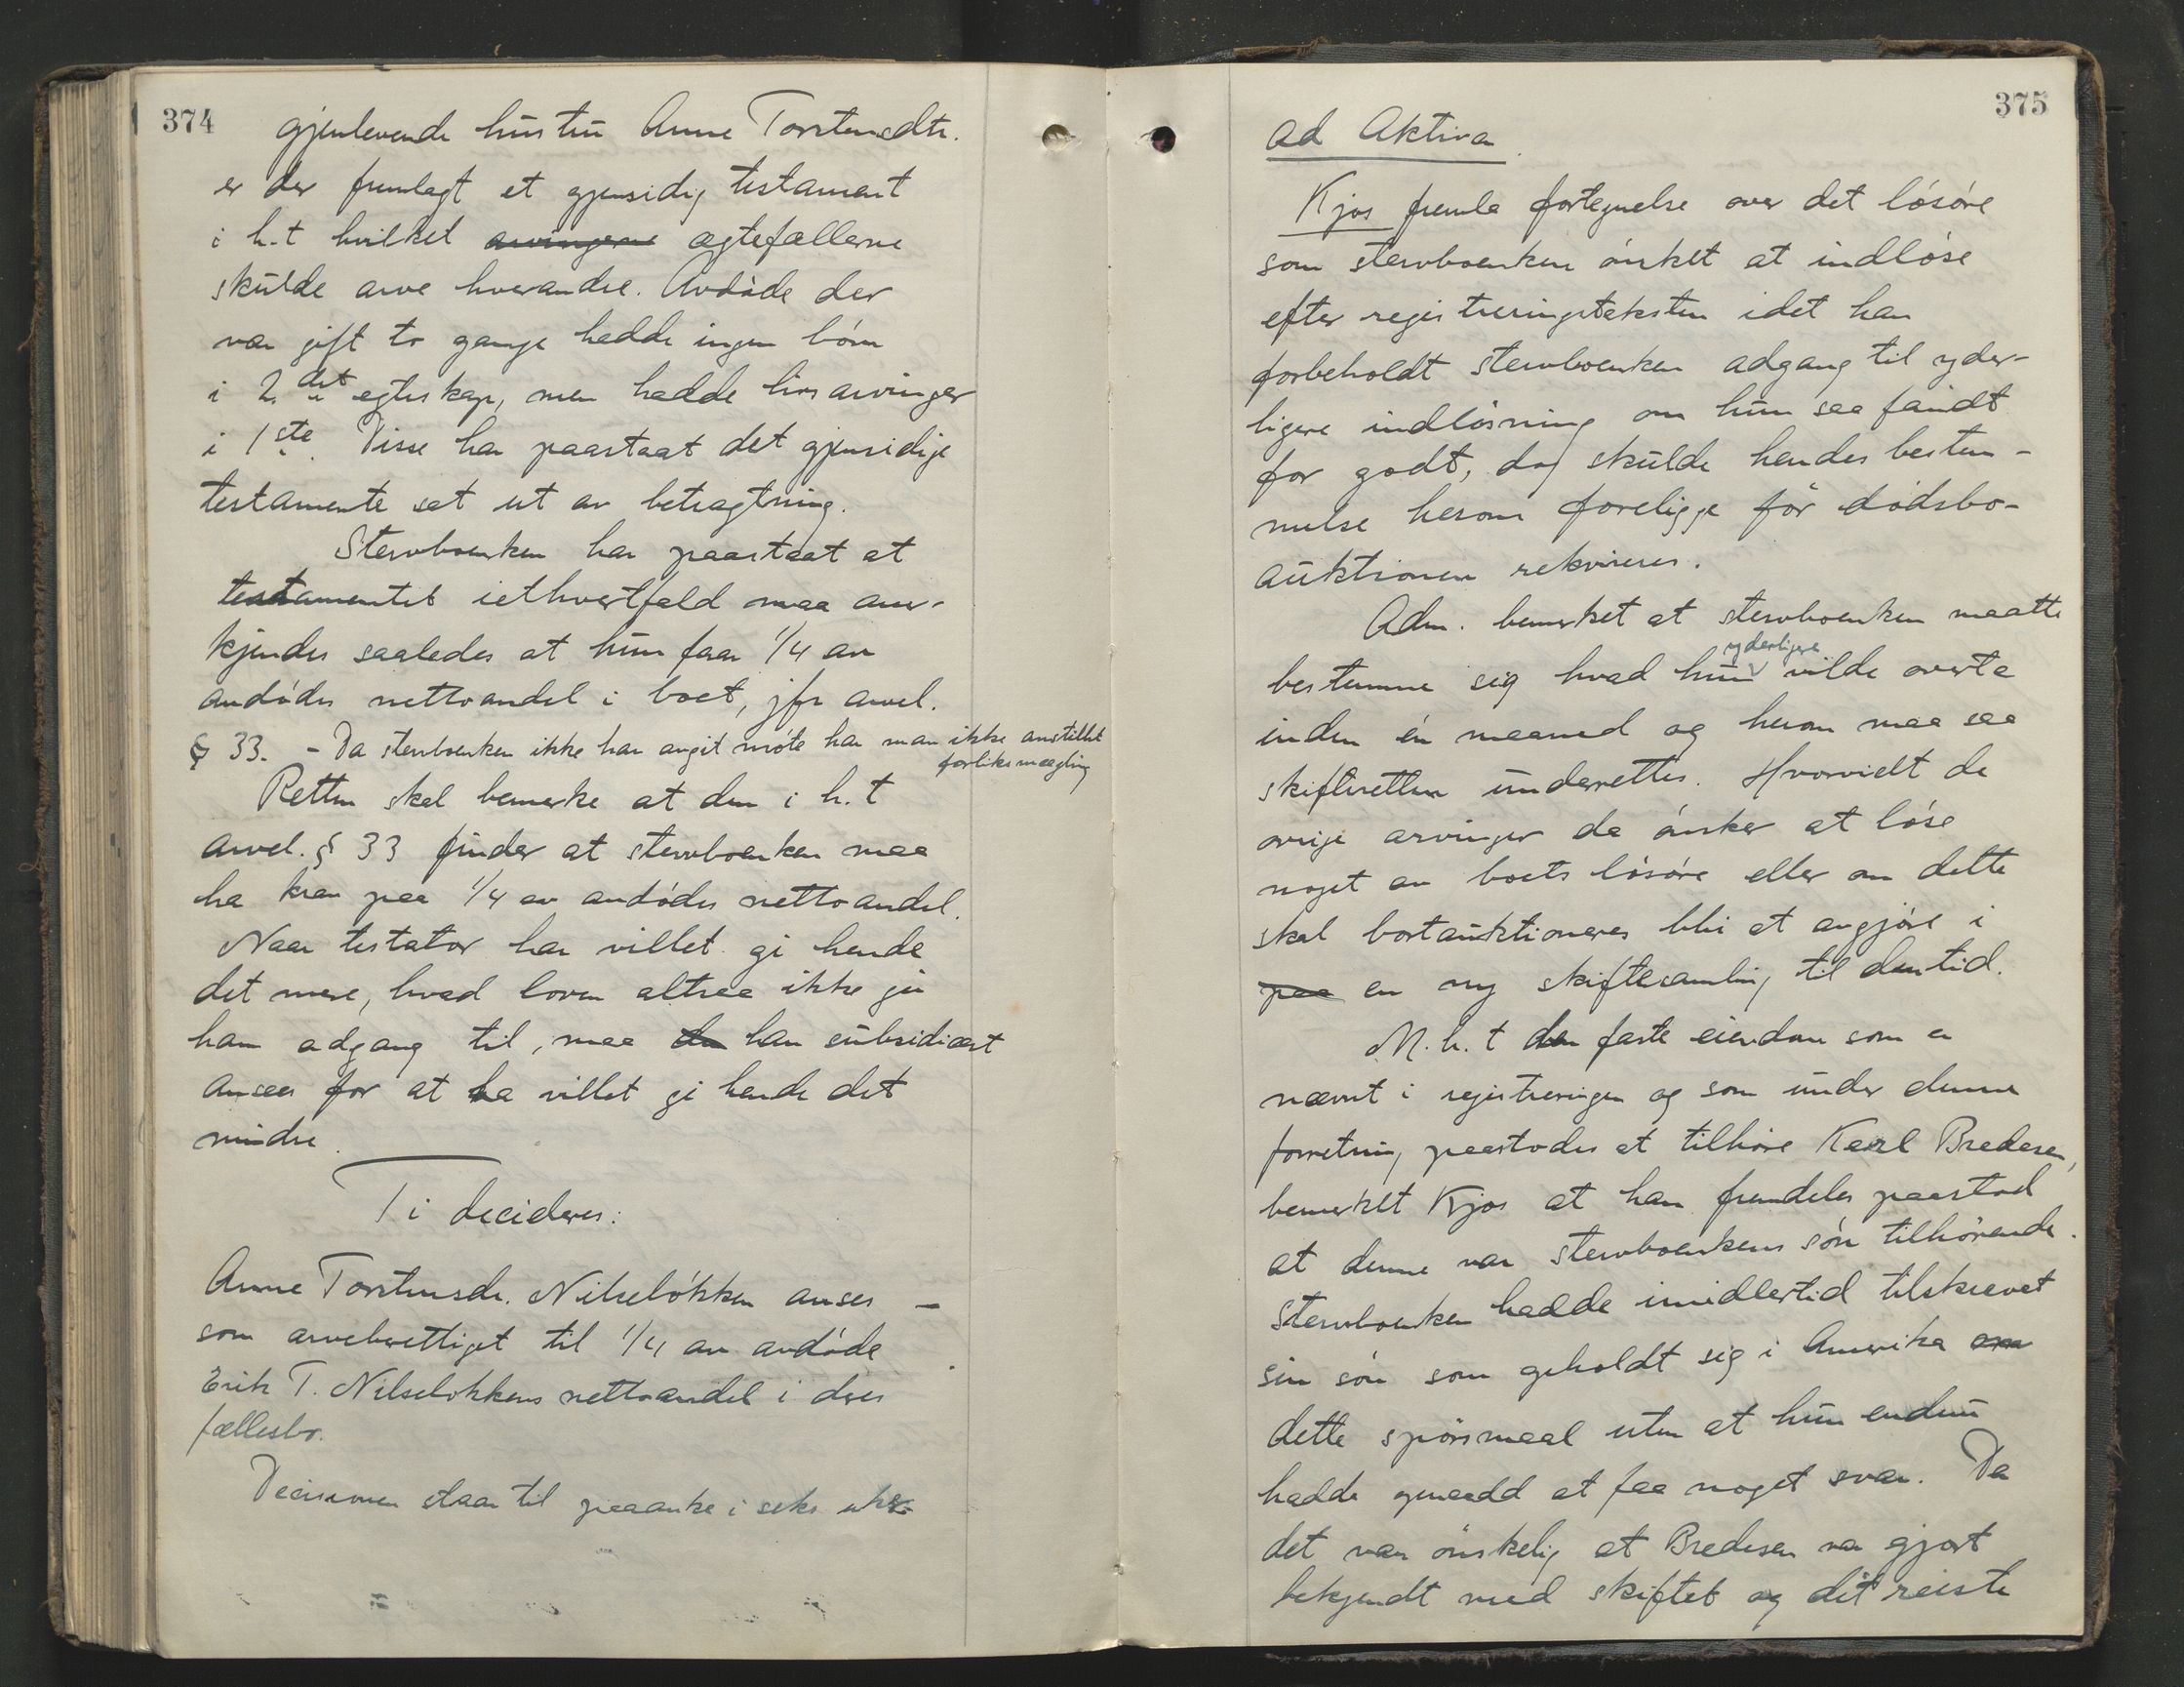 374
gjenlevende hustru Anne Torstensdtr.
er der fremlagt et gjensidig testament
i h.t hvilket arvingerne ægtefællerne
skulde arve hverandre. Avdöde der
var gift to gange hadde ingen börn
i 2det egteskap, men hadde livsarvinger
i 1ste. Disse har paastaat det gjensidige
testamente sat ut av betragtning.
Stervboenken har paastaat at
testamentet iethvertfald maa aner-
kjendes saaledes at hun faar 1/4 av
avdödes nettoandel i boet, jfr arvel.
§ 33. - Da stervboenken ikke har angit möte har man ikke anstillet
forliksmægling
Retten skal bemerke at den i h.t
arvel. § 33 finder at stervboenken maa
ha krav paa 1/4 av avdödes nettoandel.
Naar testator har villet gi hende
det mere, hvad loven altsaa ikke gir
ham adgang til, maa da han subsidiært
ansees for at ha villet gi hende det
mindre.
Ti decideres:
Anne Torstensdr. Nilselökken anses -
som arveberettiget til 1/4 av avdöde
Erik T. Nilselökkens nettoandel i deres
fællesbo.
Decisionen staar til paaanke i seks uker
375
ad Aktiva.
Kjos fremla fortegnelse over det lösöre
som stervboenken önsket at indlöse
efter registreringstaksten idet han
forbeholdt stervboenken adgang til yder-
ligere indlösning om hun saa fandt
for godt, dog skulde hendes bestem-
melse herom foreligge för dödsbo-
auktionen rekvireres.
Adm. bemerket at stervboenken maatte
yderligere
bestemme sig hvad hun vilde overta
inden én maaned og herom maa saa
skifteretten underrettes. Hvorvidt de
övrige arvinger da önsker at löse
noget av boets lösöre eller om dette
skal bortauktioneres blir at avgjöre i
paa en ny skiftesamling til den tid.
M.h.t den faste eiendom som er
nævnt i registreringen og som under denne
forretning paastodes at tilhöre Karl Bredesen,
bemerket Kjos at han fremdeles paastod
at denne var stervboenkens sön tilhörende.
Stervboenken hadde imidlertid tilskrevet
sin sön som opholdt sig i Amerika om
dette spörsmaal uten at hun endnu
hadde opnaadd at faa noget svar. Da
det var önskelig at Bredesen var gjort
bekjendt med skiftet og det reiste